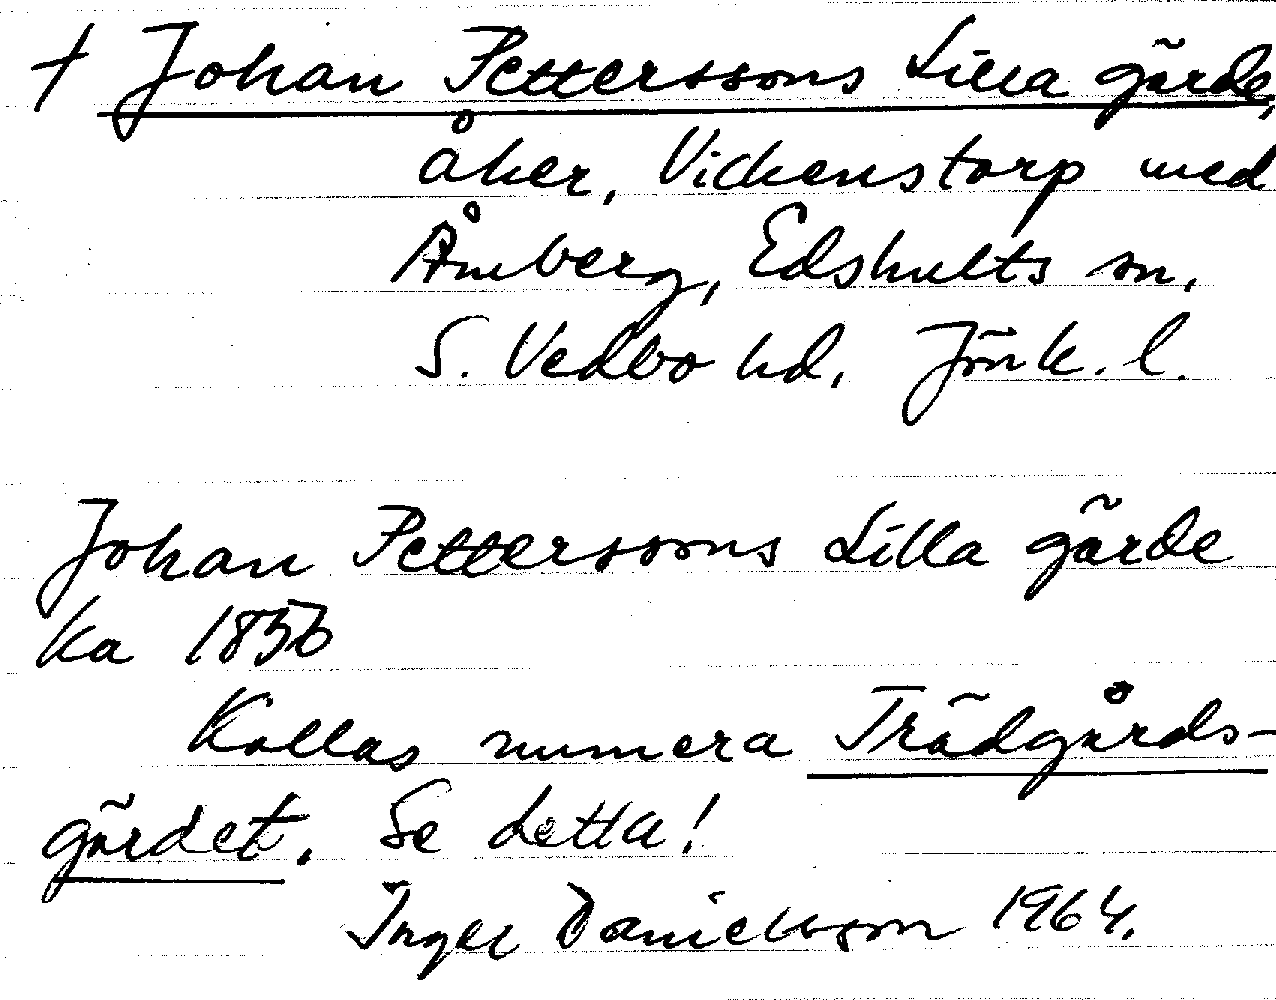 † Johan Petterssons Lilla gärde,
åker, Vickenstorp med
Åmberg, Edshults sn,
S. Vedbo hd, Jönk. l.
Johan Petterssons Lilla gärde
Ka 1856
Kallas numera Trädgårds-
gärdet. Se detta!
Inger Danielsson 1964.